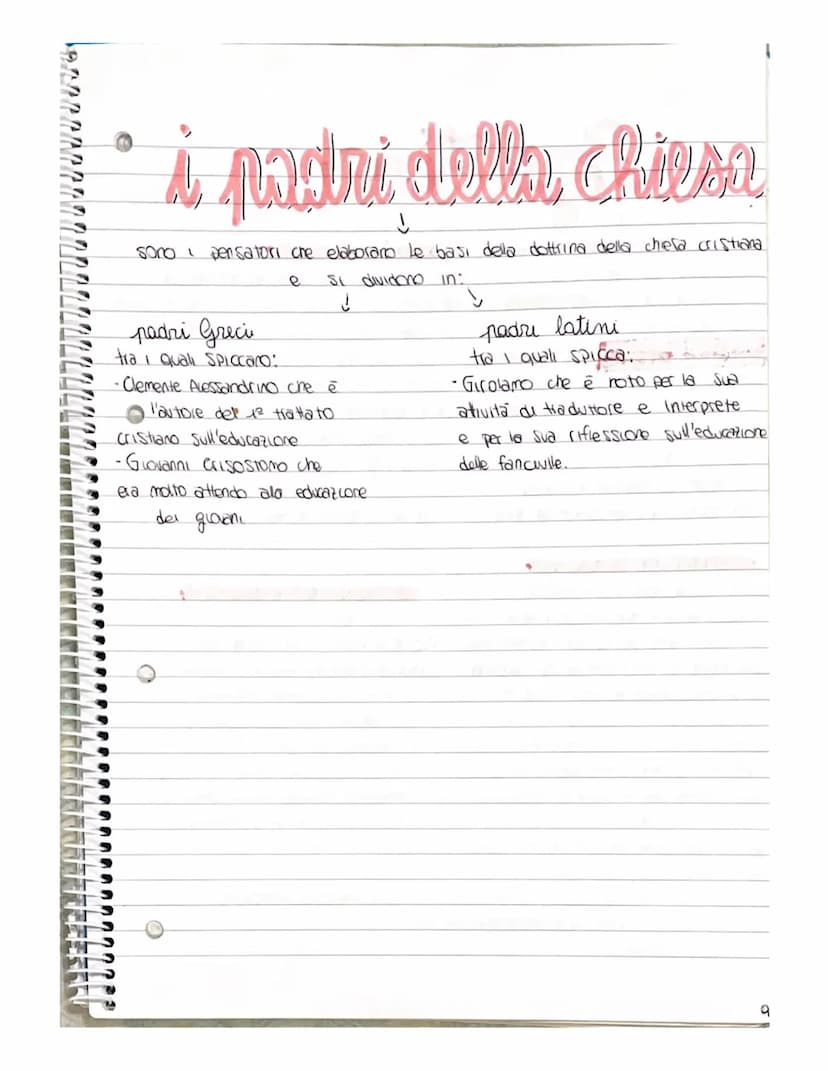 i padri della chiesa
↓
sono i pensatori che elaborano le basi della dottrina della chesa cristiana
e si dividono in:
↓ ↓
padri Greci
tra i quali spiccano:
- Clemente Alessandrino che è
l'autore del 1° trattato
cristiano sull'educazione
- Giovanni Crisostomo che
era molto attendo alla educazione
dei giovani
padri latini
tra i quali spicca:
- Girolamo che è noto per la sua
attività di traduttore e interprete
e per la sua riflessione sull'educazione
delle fanciulle.
9